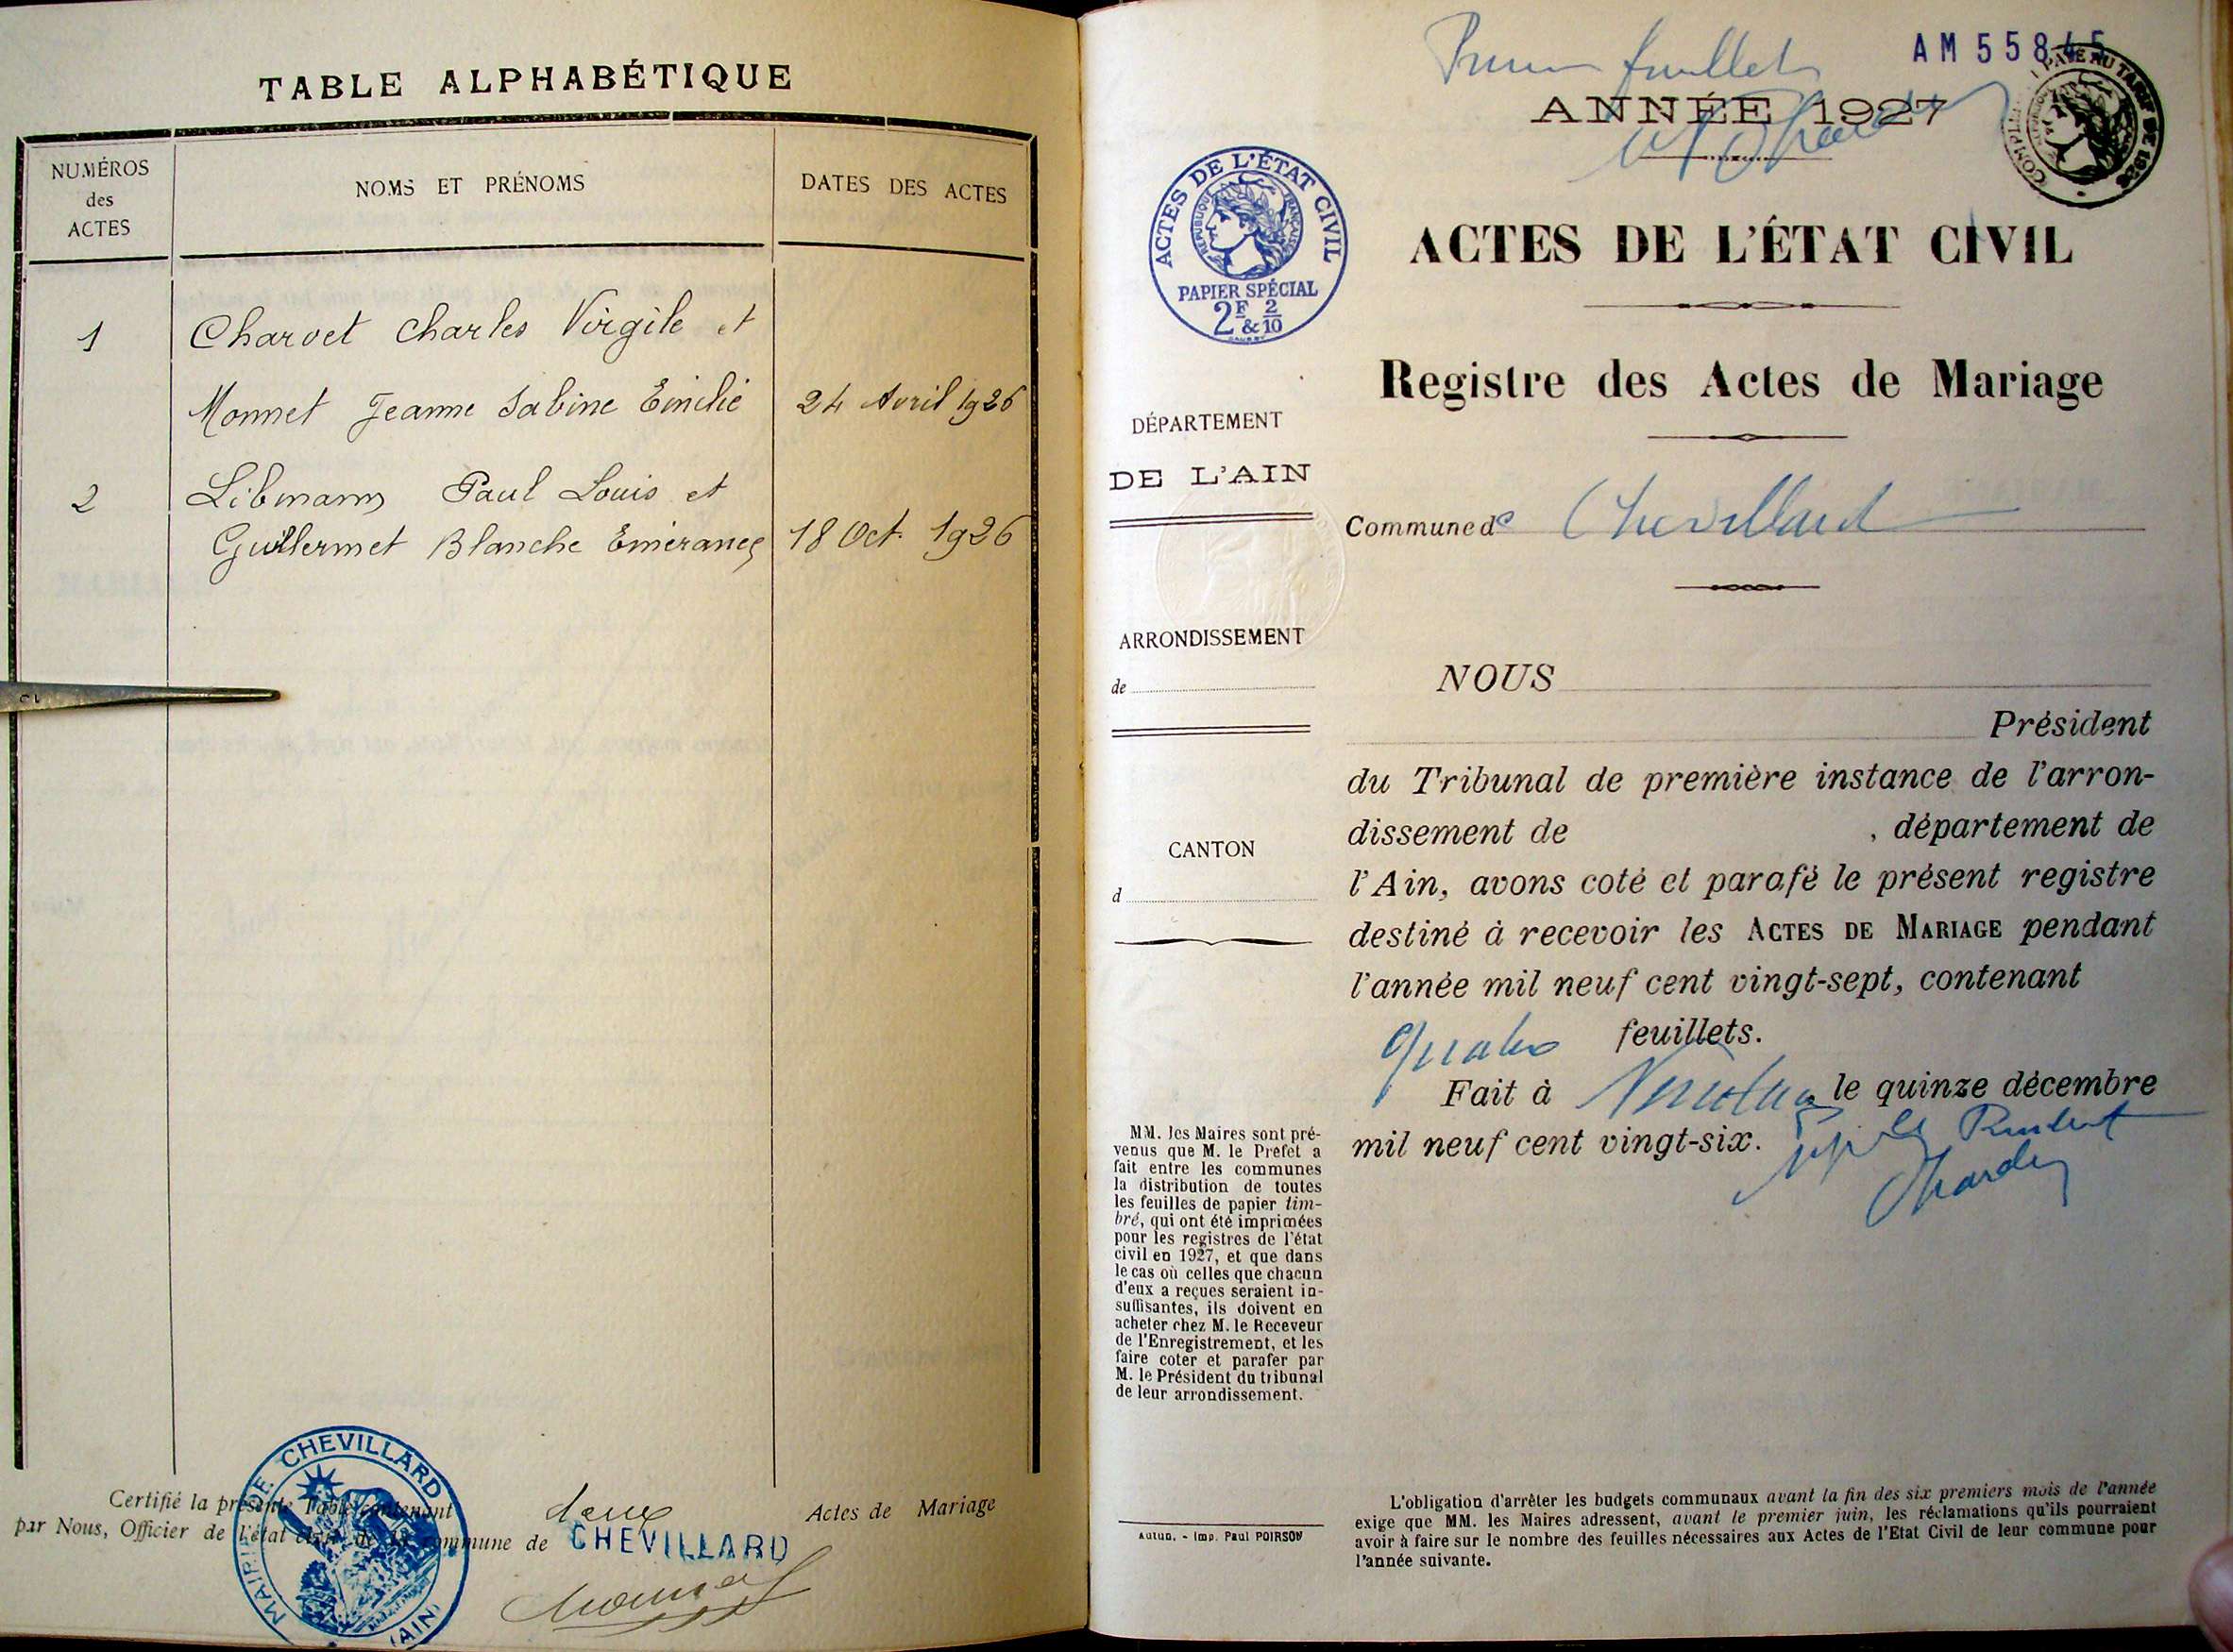 TABLE ALPHABÉTIQUE
NUMÉROS
des
ACTES
NOMS ET PRÉNOMS
DATES DES ACTES
1
Charvet Charles Virgile et
Monnet Jeanne Sabine Emélie
24 Avril 1926
2
Libmann Paul Louis et
Guillermet Blanche Emérance
18 Oct. 1926
Certifié la présente Table contenant deux Actes de Mariage
par Nous, Officier de l'état civil de la commune de CHEVILLARD
MAIRIE DE CHEVILLARD
(AIN)
Premier feuillet
AM 55845
ANNÉE 1927
ACTES DE L'ÉTAT CIVIL
RÉPUBLIQUE FRANÇAISE
PAPIER SPÉCIAL
2F & 2/10
COMPLÉMENT PAYÉ AU TARIF DE 1926
ACTES DE L'ÉTAT CIVIL
Registre des Actes de Mariage
DÉPARTEMENT
DE L'AIN
Commune de Chevillard
ARRONDISSEMENT
de
CANTON
d
NOUS
Président
du Tribunal de première instance de l'arron-
dissement de , département de
l'Ain, avons coté et parafé le présent registre
destiné à recevoir les ACTES DE MARIAGE pendant
l'année mil neuf cent vingt-sept, contenant
quatre feuillets.
Fait à Nantua le quinze décembre
mil neuf cent vingt-six.
MM. les Maires sont pré-
venus que M. le Préfet a
fait entre les communes
la distribution de toutes
les feuilles de papier tim-
bré, qui ont été imprimées
pour les registres de l'état
civil en 1927, et que dans
le cas où celles que chacun
d'eux a reçues seraient in-
suffisantes, ils doivent en
acheter chez M. le Receveur
de l'Enregistrement, et les
faire coter et parafer par
M. le Président du tribunal
de leur arrondissement.
Autun. - Imp. Paul POIRSON
L'obligation d'arrêter les budgets communaux avant la fin des six premiers mois de l'année
exige que MM. les Maires adressent, avant le premier juin, les réclamations qu'ils pourraient
avoir à faire sur le nombre des feuilles nécessaires aux Actes de l'Etat Civil de leur commune pour
l'année suivante.